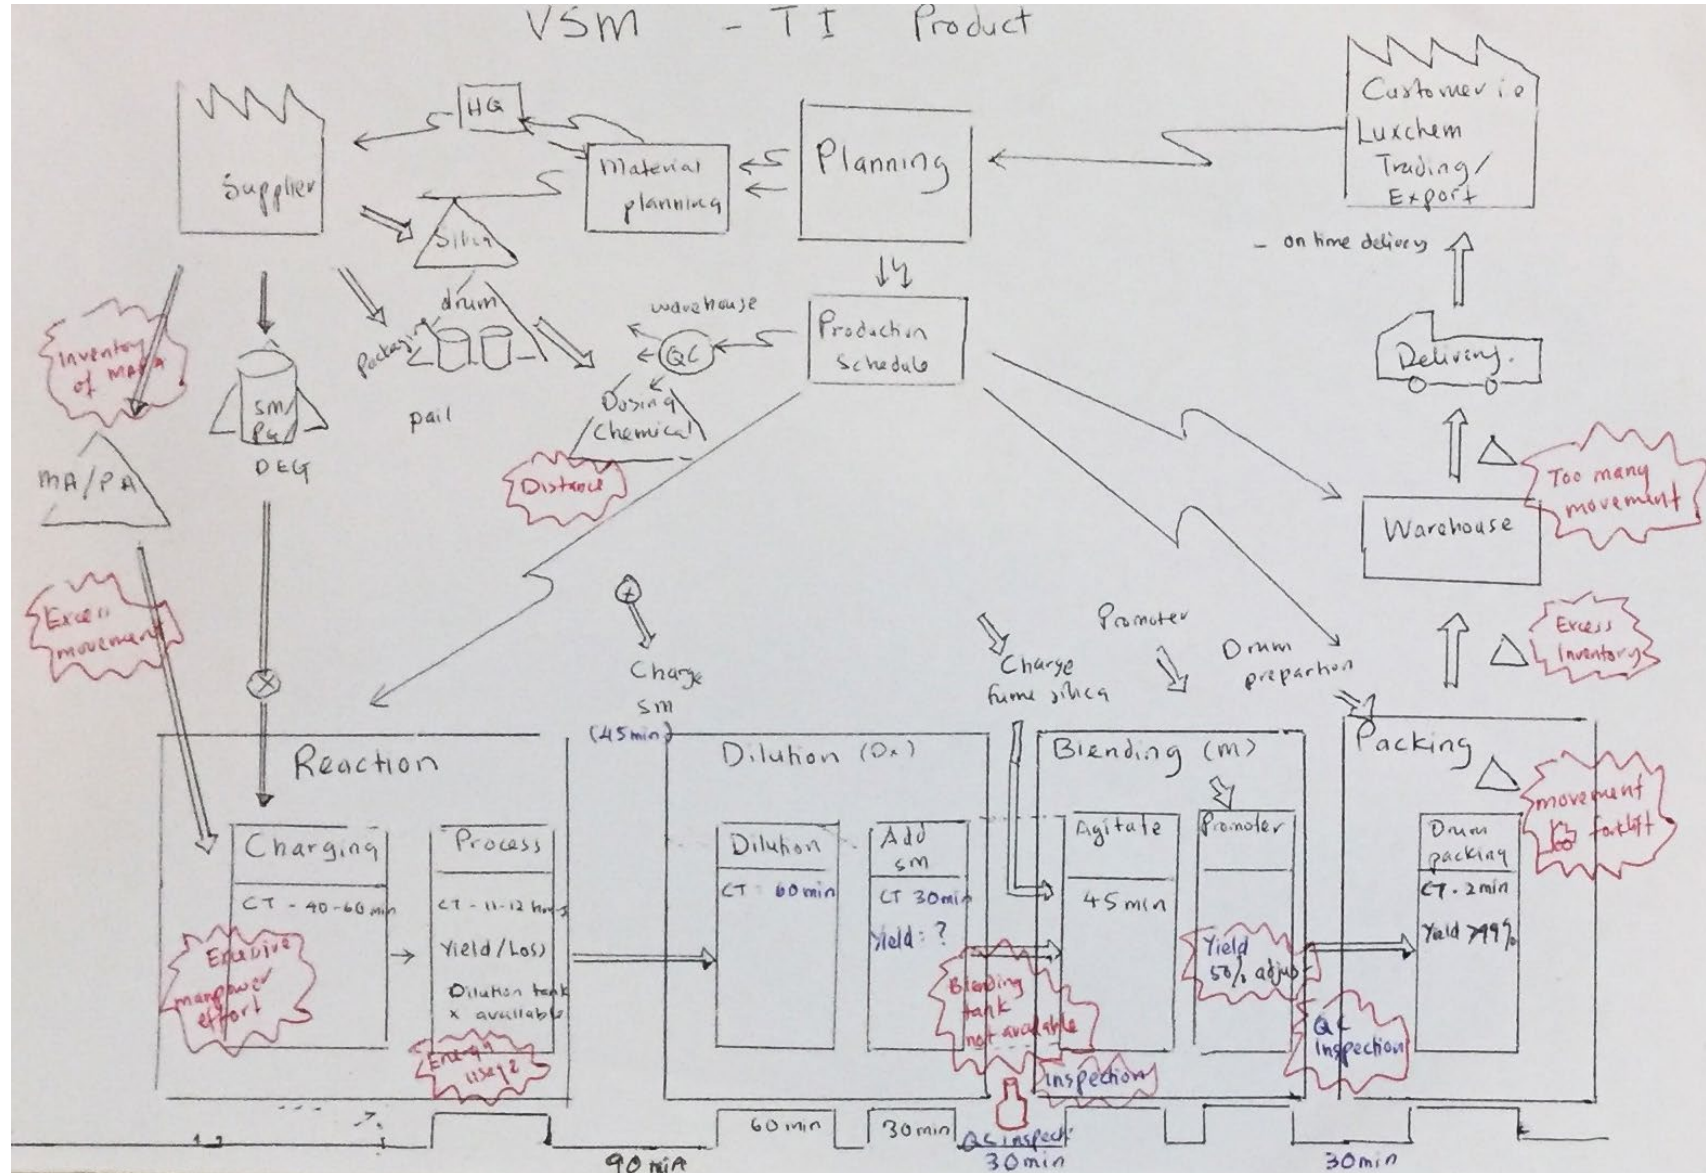 VSM - TI Product
Supplier
HQ
Material
planning
Planning
Customer i.e
Luxchem
Trading/
Export
- on time delivery
drum
Packaging
pail
warehouse
QC
Production
Schedule
Dosing
Chemical
Distance
Inventory
of
SM/
PG/
DEG
MA/PA
Excess
movement
Delivery.
Too many
movement
Warehouse
Excess
Inventory
Charge
SM
(45min)
Charge
fume silica
Promoter
Drum
prepartion
Reaction
Charging
CT - 40-60min
Excessive
manpower
effort
Process
CT - 11-12 hours
Yield/Loss
Dilution tank
x available
Energy
usage
Dilution (Dx)
Dilution
CT 60min
Add
SM
CT 30min
Yield: ?
Blending
tank
not available
Blending (M)
Agitate
45min
Promoter
Yield
50% adjus
Inspection
QC
Inspection
Packing
movement
forklift
Drum
packing
CT - 2min
Yield >99%
90min
60min
30min
QC inspect
30min
30min